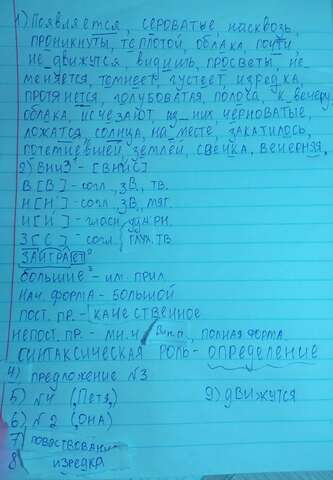 1) Появляется, сероватые, насквозь,
проникнуты, теплотой, облака, почти
не движутся, видишь, просветы, не
меняется, темнеет, густеет, изредка,
протянется, голубоватая, полоса, к вечеру,
облака, исчезают, из них, черноватые,
ложатся, солнца, на месте, закатилось,
потемневшей, землёй, свечка, вечерняя,
2) вниз - [вн'ис]
в [в] - согл., зв., тв.
н [н'] - согл., зв., мяг.
и [и] - гласн., ударн.
з [с] - согл., глух. тв
заиграет
большие³ - им. прил.
нач. форма - большой
пост. пр. - качественное
непост. пр. - мн. ч., полная форма
синтаксическая роль - определение
4) предложение №3
5) №4 (Петя) 9) движутся
6) №2 (она)
7) повествование
8 изредка